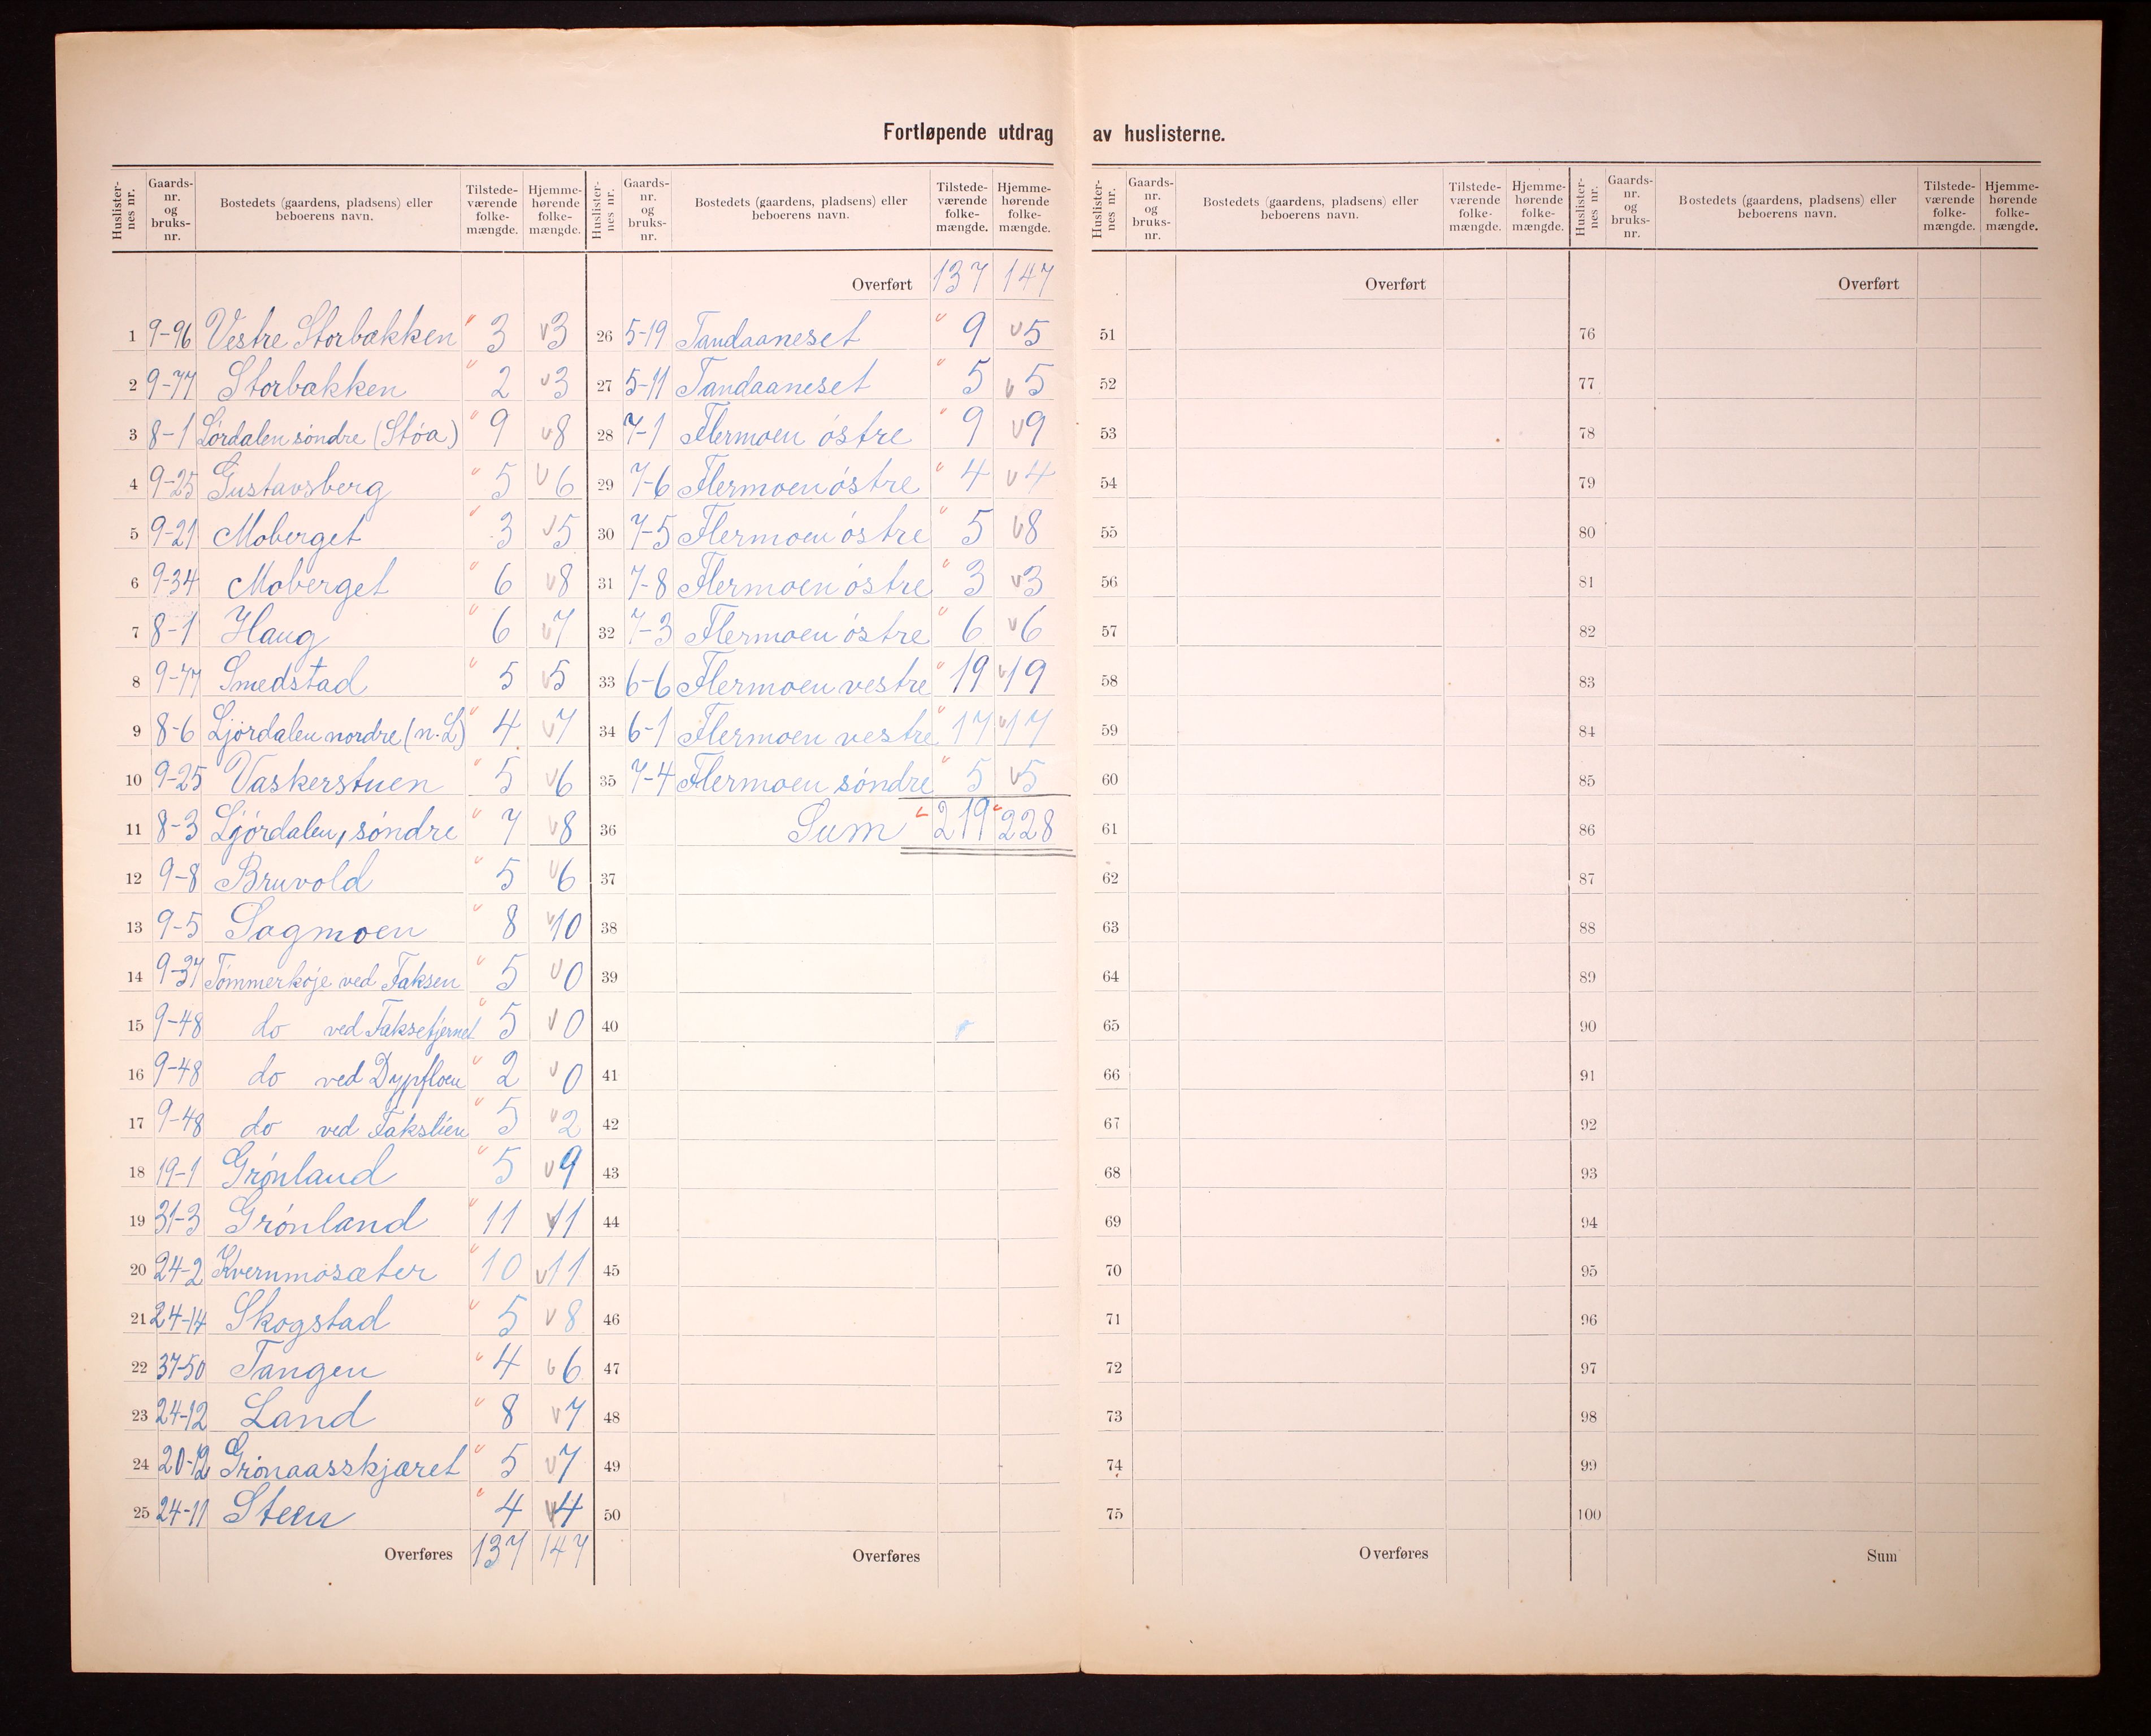 Fortløpende utdrag av huslisterne.
Huslisternes nr. Gaards-nr. og bruks-nr. Bostedets (gaardens, pladsens) eller beboerens navn. Tilstedeværende folkemængde. Hjemmehørende folkemængde.
1 9-96 Vestre Storbækken 3 3
2 9-77 Storbækken 2 3
3 8-1 Lördalen söndre (Stöa) 9 8
4 9-25 Gustavsberg 5 6
5 9-21 Moberget 3 5
6 9-34 Moberget 6 8
7 8-1 Haug 6 7
8 9-77 Smedstad 5 5
9 8-6 Ljördalen nordre (n. L) 4 7
10 9-25 Vaskerstuen 5 6
11 8-3 Ljördalen, söndre 7 8
12 9-8 Bruvold 5 6
13 9-5 Sagmoen 8 10
14 9-37 Tömmerköje ved Faksen 5 0
15 9-48 do ved Faksefjernet 5 0
16 9-48 do ved Dypfloen 2 0
17 9-48 do ved Fakslien 5 2
18 19-1 Grönland 5 9
19 31-3 Grönland 11 11
20 24-2 Kvernmosæter 10 11
21 24-14 Skogstad 5 8
22 37-50 Tangen 4 6
23 24-12 Land 8 7
24 20-12 Grönaasskjæret 5 7
25 24-11 Steen 4 4
Overføres 137 147
Huslisternes nr. Gaards-nr. og bruks-nr. Bostedets (gaardens, pladsens) eller beboerens navn. Tilstedeværende folkemængde. Hjemmehørende folkemængde.
Overført 137 147
26 5-19 Tandaaneset 9 5
27 5-11 Tandaaneset 5 5
28 7-1 Flermoen östre 9 9
29 7-6 Flermoen östre 4 4
30 7-5 Flermoen östre 5 8
31 7-8 Flermoen östre 3 3
32 7-3 Flermoen östre 6 6
33 6-6 Flermoen vestre 19 19
34 6-1 Flermoen vestre 17 17
35 7-4 Flermoen söndre 5 5
36 Sum 219 228
37
38
39
40
41
42
43
44
45
46
47
48
49
50
Overføres
Huslisternes nr. Gaards-nr. og bruks-nr. Bostedets (gaardens, pladsens) eller beboerens navn. Tilstedeværende folkemængde. Hjemmehørende folkemængde.
Overført
51
52
53
54
55
56
57
58
59
60
61
62
63
64
65
66
67
68
69
70
71
72
73
74
75
Overføres
Huslisternes nr. Gaards-nr. og bruks-nr. Bostedets (gaardens, pladsens) eller beboerens navn. Tilstedeværende folkemængde. Hjemmehørende folkemængde.
Overført
76
77
78
79
80
81
82
83
84
85
86
87
88
89
90
91
92
93
94
95
96
97
98
99
100
Sum